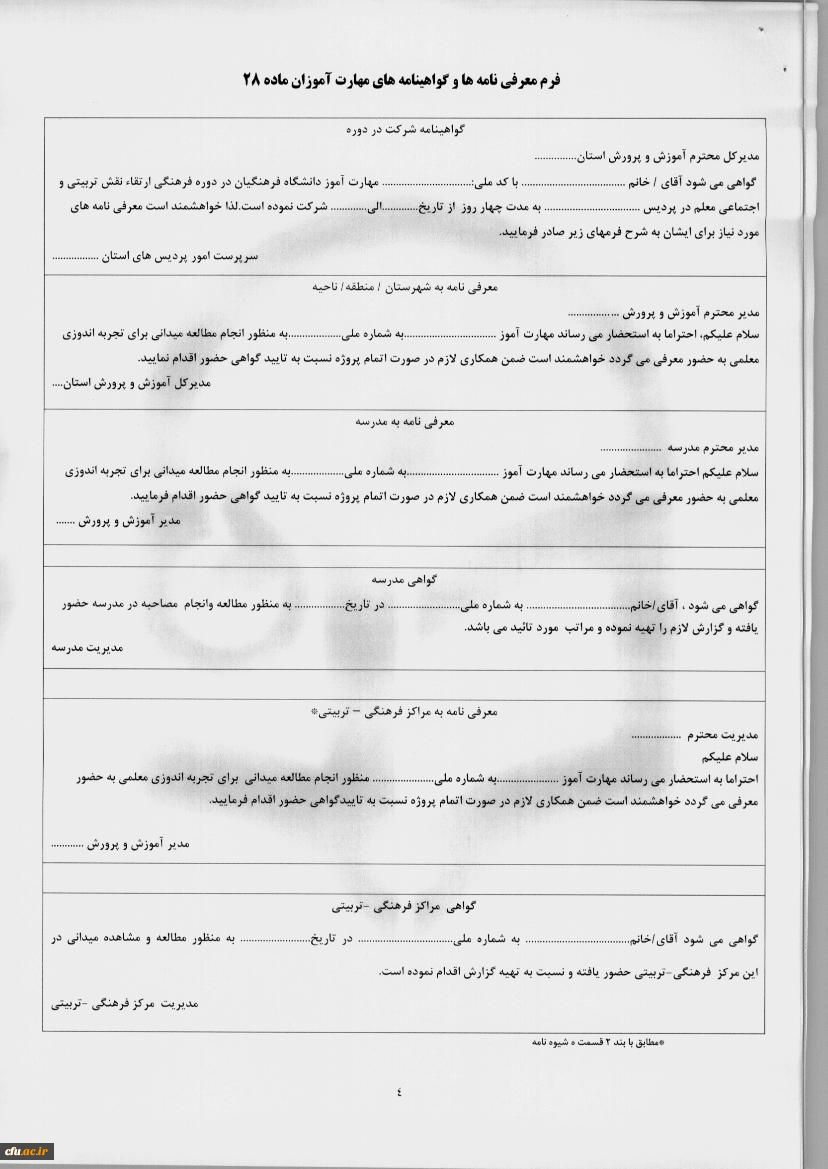 فرم معرفی نامه ها و گواهینامه های مهارت آموزان ماده ۲۸
گواهینامه شرکت در دوره
مدیرکل محترم آموزش و پرورش استان...............
گواهی می شود آقای / خانم ...................................... با کد ملی:................................ مهارت آموز دانشگاه فرهنگیان در دوره فرهنگی ارتقاء نقش تربیتی و
اجتماعی معلم در پردیس ................................... به مدت چهار روز از تاریخ.............الی............. شرکت نموده است.لذا خواهشمند است معرفی نامه های
مورد نیاز برای ایشان به شرح فرمهای زیر صادر فرمایید.
سرپرست امور پردیس های استان .................
معرفی نامه به شهرستان / منطقه/ ناحیه
مدیر محترم آموزش و پرورش ...................
سلام علیکم، احتراما به استحضار می رساند مهارت آموز .................................به شماره ملی...................به منظور انجام مطالعه میدانی برای تجربه اندوزی
معلمی به حضور معرفی می گردد خواهشمند است ضمن همکاری لازم در صورت اتمام پروژه نسبت به تایید گواهی حضور اقدام نمایید.
مدیرکل آموزش و پرورش استان....
معرفی نامه به مدرسه
مدیر محترم مدرسه ......................
سلام علیکم احتراما به استحضار می رساند مهارت آموز .................................به شماره ملی...................به منظور انجام مطالعه میدانی برای تجربه اندوزی
معلمی به حضور معرفی می گردد خواهشمند است ضمن همکاری لازم در صورت اتمام پروژه نسبت به تایید گواهی حضور اقدام فرمایید.
مدیر آموزش و پرورش .......
گواهی مدرسه
گواهی می شود ، آقای/خانم...................................... به شماره ملی.......................... در تاریخ.................. به منظور مطالعه وانجام مصاحبه در مدرسه حضور
یافته و گزارش لازم را تهیه نموده و مراتب مورد تائید می باشد.
مدیریت مدرسه
معرفی نامه به مراکز فرهنگی – تربیتی*
مدیریت محترم ..................
سلام علیکم
احتراما به استحضار می رساند مهارت آموز ......................به شماره ملی...................... منظور انجام مطالعه میدانی برای تجربه اندوزی معلمی به حضور
معرفی می گردد خواهشمند است ضمن همکاری لازم در صورت اتمام پروژه نسبت به تاییدگواهی حضور اقدام فرمایید.
مدیر آموزش و پرورش ............
گواهی مراکز فرهنگی -تربیتی
گواهی می شود آقای/خانم...................................... به شماره ملی.................................. در تاریخ......................... به منظور مطالعه و مشاهده میدانی در
این مرکز فرهنگی-تربیتی حضور یافته و نسبت به تهیه گزارش اقدام نموده است.
مدیریت مرکز فرهنگی -تربیتی
*مطابق با بند ۲ قسمت ه شیوه نامه
٤
cfu.ac.ir